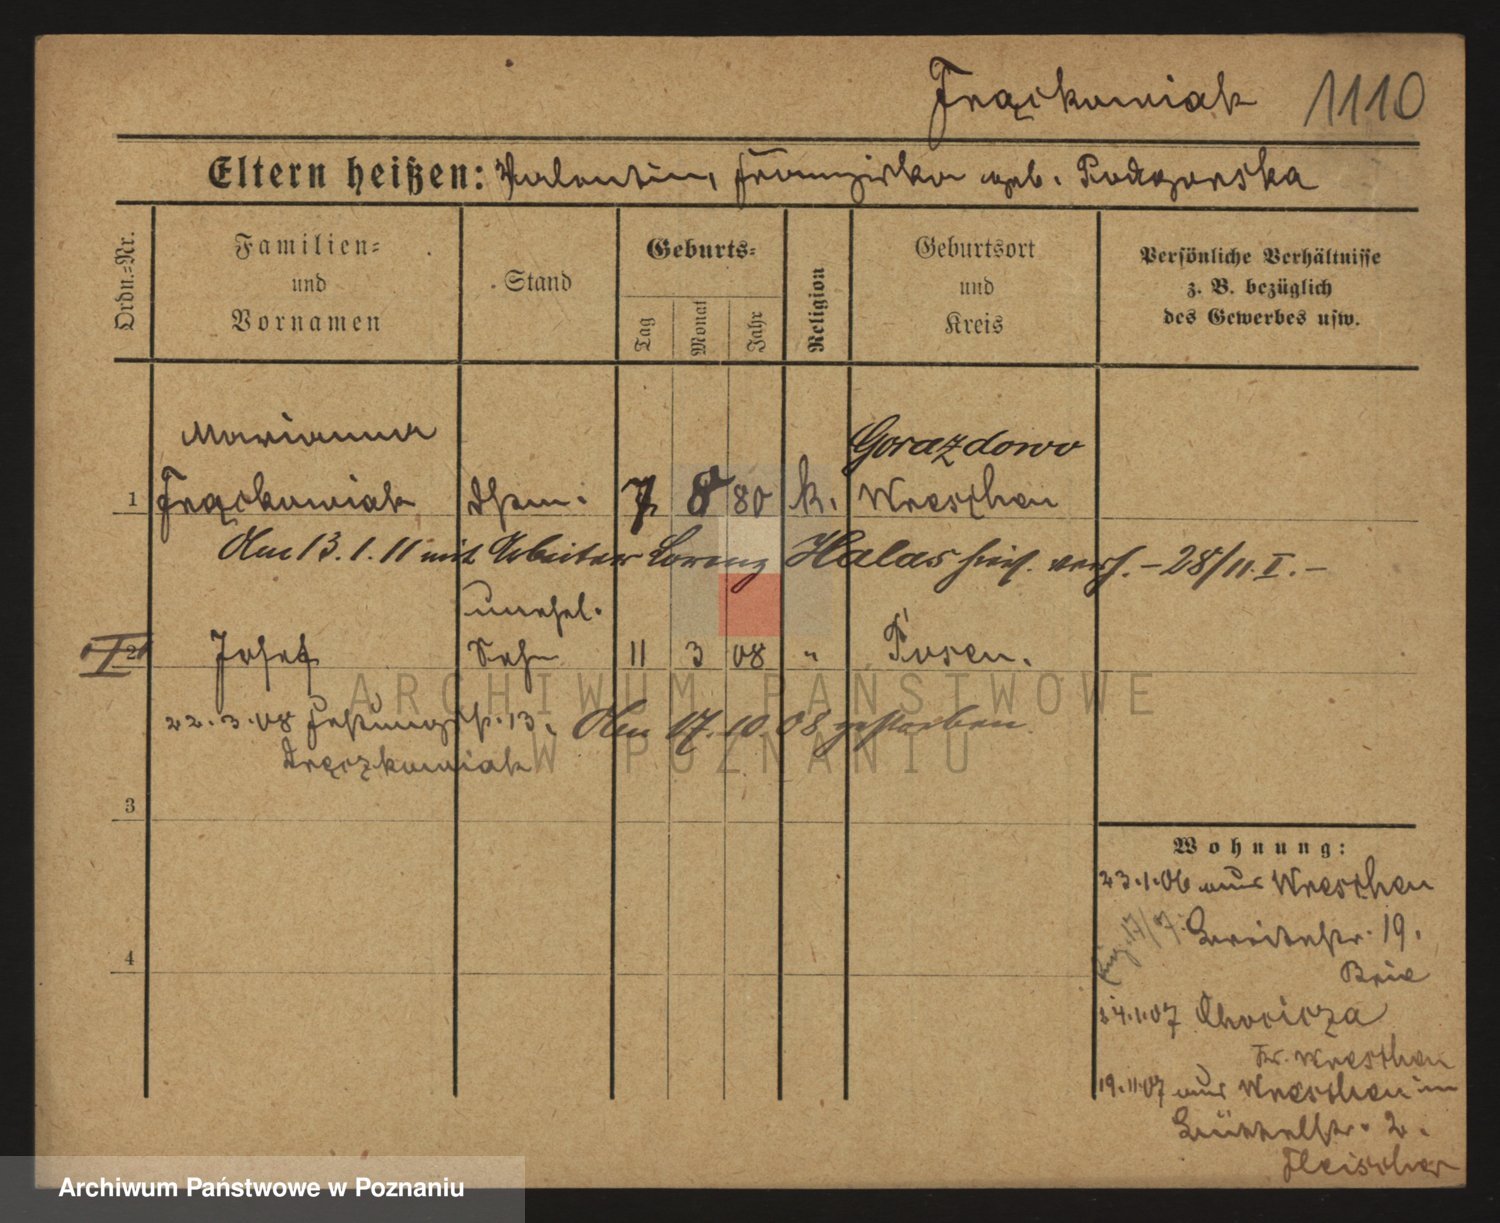 Frąckowiak 1110
Eltern heißen: Valentin, Franziska geb. Podgorska
Ordn.=Nr.
Familien=
und
Vornamen
Stand
Geburts=
Tag
Monat
Jahr
Religion
Geburtsort
und
Kreis
Persönliche Verhältnisse
z. B. bezüglich
des Gewerbes usw.
Marianna Gorazdowo
1 Frąckowiak 7 8 80 k. Wreschen
Am 13.1.11 mit Arbeiter Lorenz Halas hies. verh. – 28/11. I. –
unehel.
2 Josef Sohn 11 3 08 " Posen.
22.3.08 Festungsstr. 13. Am 17.10.08 gestorben
Frączkowiak
3
4
Wohnung:
23.1.06 aus Wreschen
17/7. Breitestr. 19.
14.1.07 Chocicza
Kr. Wreschen
19.11.07 aus Wreschen in
Büttelstr. 2.
Fleischer
ARCHIWUM PAŃSTWOWE
W POZNANIU
Archiwum Państwowe w Poznaniu